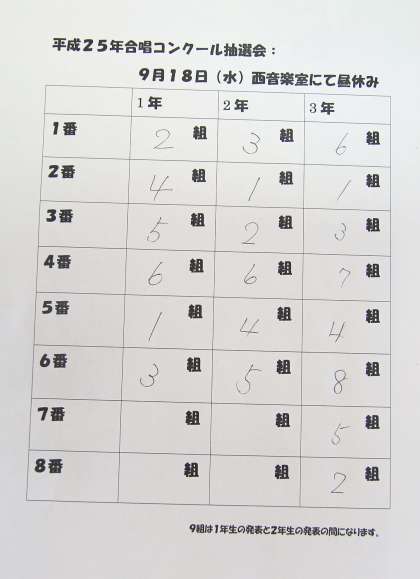 平成25年合唱コンクール抽選会：
9月18日（水）西音楽室にて昼休み
1年 2年 3年
1番 2組 3組 6組
2番 4組 1組 1組
3番 5組 2組 3組
4番 6組 6組 7組
5番 1組 4組 4組
6番 3組 5組 8組
7番 組 組 5組
8番 組 組 2組
9組は1年生の発表と2年生の発表の間になります。